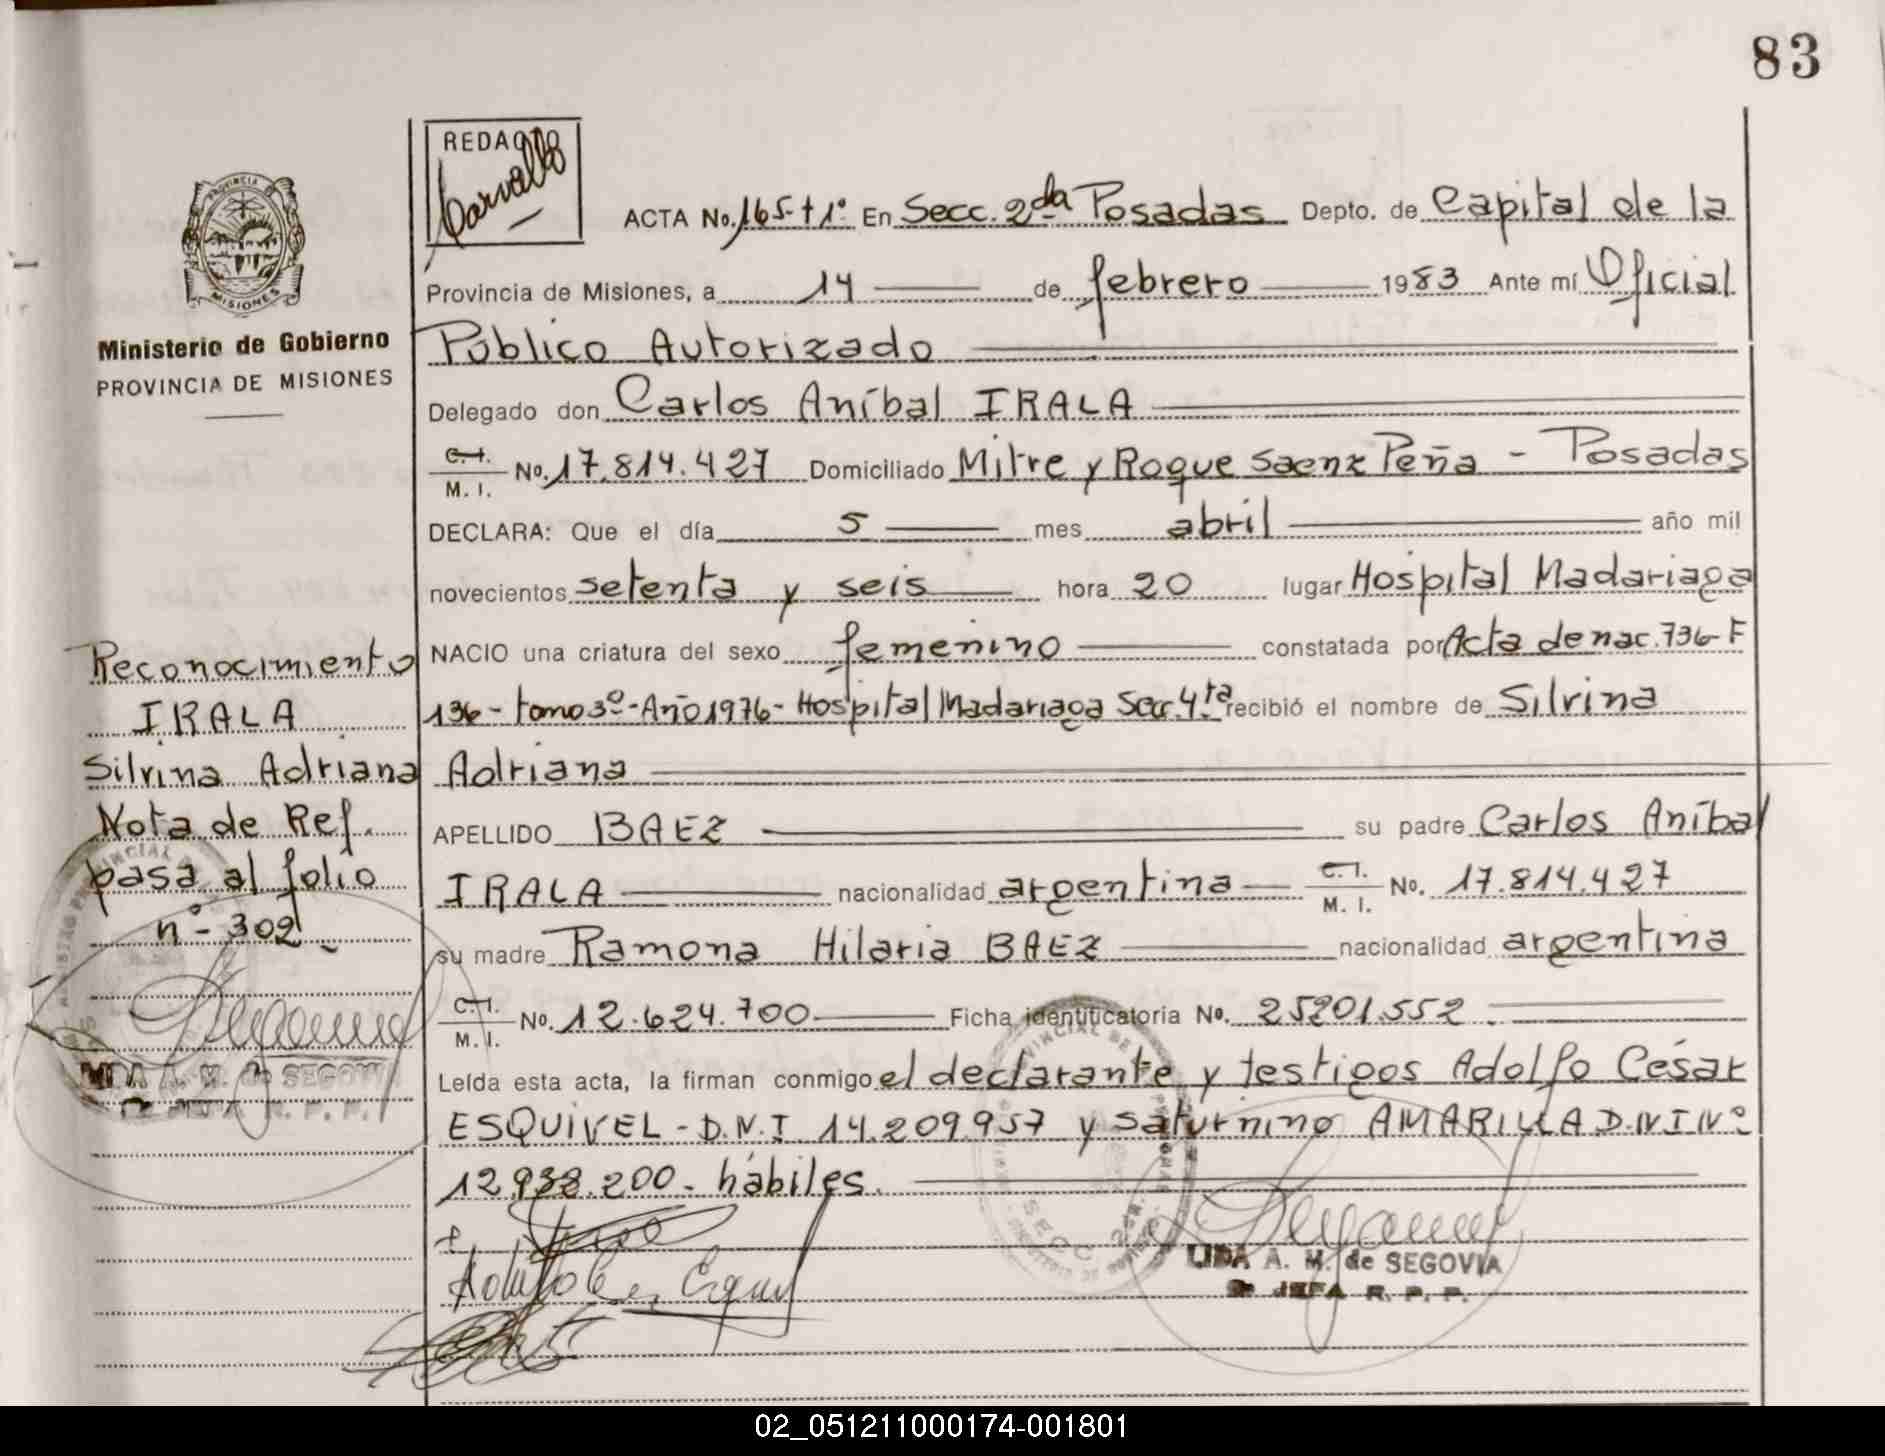 83
REDACTO
Carvallo
PROVINCIA
MISIONES
Ministerio de Gobierno
PROVINCIA DE MISIONES
ACTA No. 165-t 1º En Secc. 2da Posadas Depto. de Capital de la
Provincia de Misiones, a 14 de febrero 1983 Ante mí Oficial
Público Autorizado
Delegado don Carlos Aníbal IRALA
C.I. M. I. No. 17.814.427 Domiciliado Mitre y Roque Saenz Peña - Posadas
DECLARA: Que el día 5 mes abril año mil
novecientos setenta y seis hora 20 lugar Hospital Madariaga
NACIO una criatura del sexo femenino constatada por Acta de nac. 736-F
136-tomo 3º-Año 1976-Hospital Madariaga Secc. 4ta recibió el nombre de Silvina
Adriana
APELLIDO BAEZ su padre Carlos Aníbal
IRALA nacionalidad argentina C.I. M. I. No. 17.814.427
su madre Ramona Hilaria BAEZ nacionalidad argentina
C.I. M. I. No. 12.624.700 Ficha identificatoria No. 25201.552
Leída esta acta, la firman conmigo el declarante y testigos Adolfo César
ESQUIVEL - D.N.I 14.209.957 y Saturnino AMARILLA D.N.I Nº
12.938.200- hábiles.
LIDA A. M. de SEGOVIA
JEFA R. P. P.
Reconocimiento
IRALA
Silvina Adriana
Nota de Ref.
pasa al folio
nº- 302
LIDA A. M. de SEGOVIA
JEFA R. P. P.
02_051211000174-001801